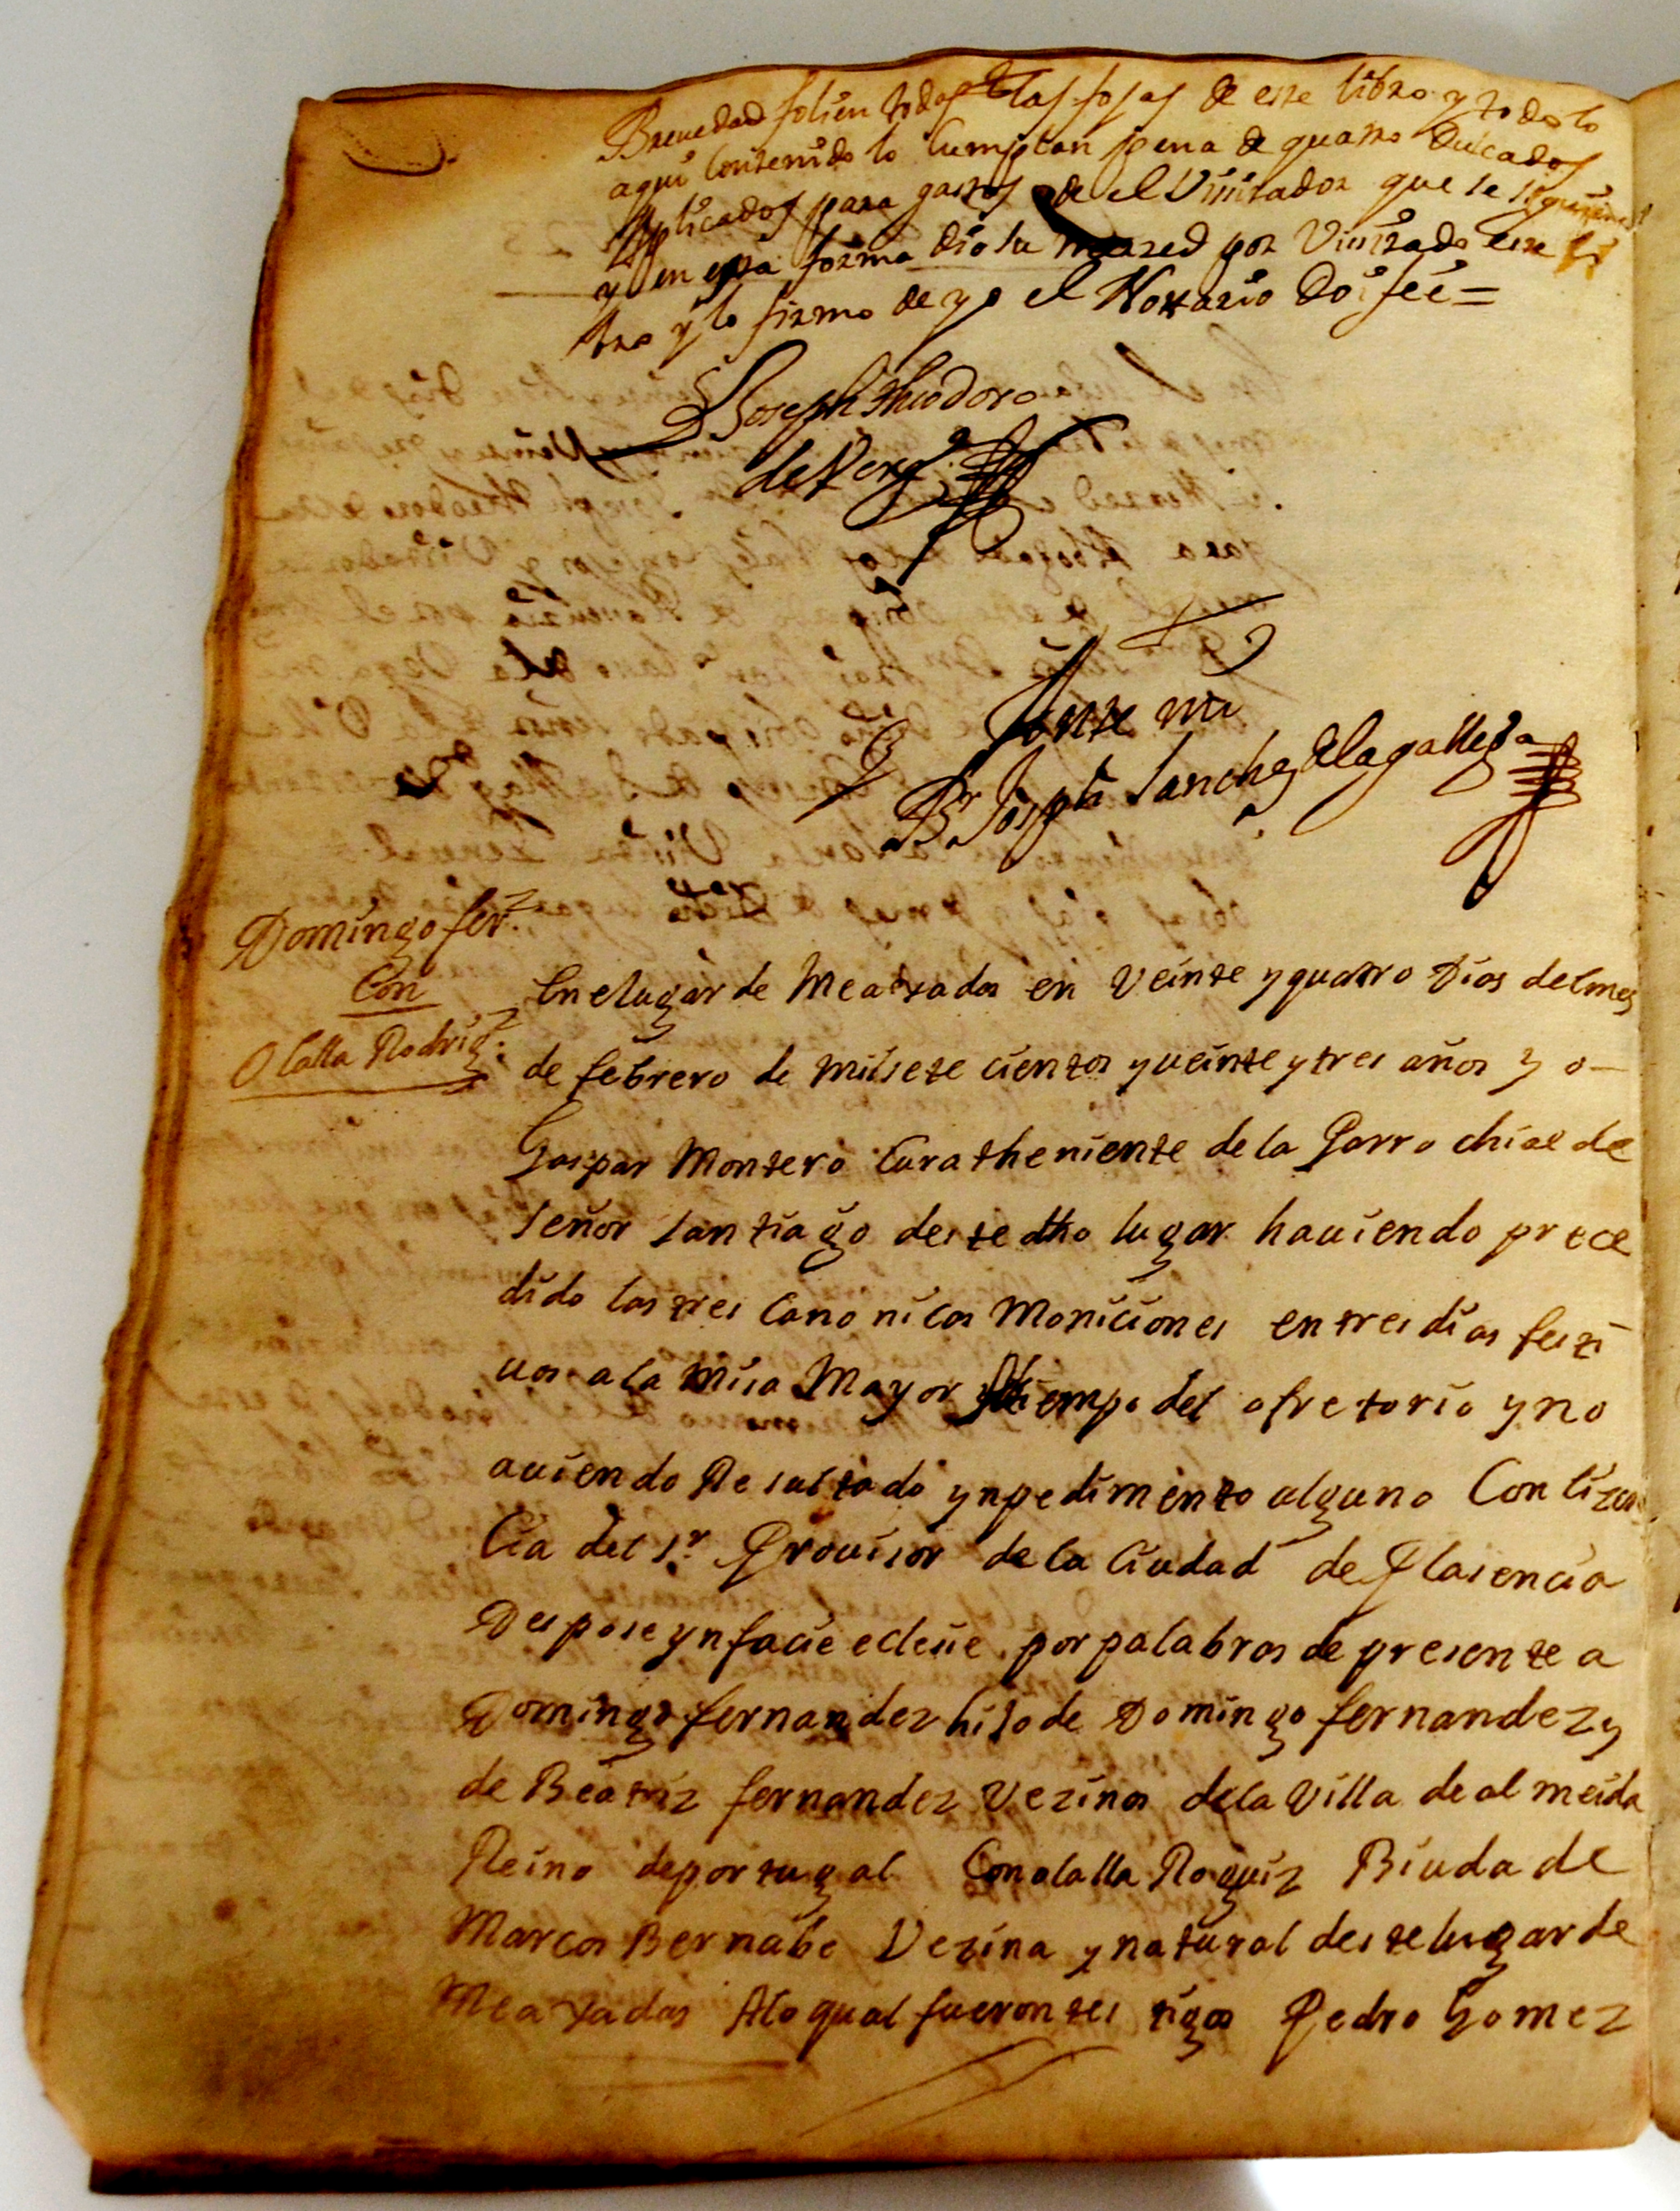 Breuedad folien todas las fojas de este libro y todo lo
aqui Contenido lo Cumplan pena de quatro Ducados
Aplicados para gastos de el Viсitador que le
y en esta forma dio su merzed por Viсitado este li
bro y lo firmo de yo el Nottario Doi feé =
D Joseph theodoro
de
Ante mi
Br Joseph Sanchez de la gallega
Domingo ferz.
Con
Olalla Rodrigz.
En elugar de Meaxadas en Veinte y quatro Dias del mes
de febrero de mil sete cientos y veinte y tres años yo
Gaspar Montero Cura theniente de la Parrochial de
Señor Santiago deste dho lugar hauiendo prece
dido las tres Canonicas Moniciones en tres dias festi
uos a la misa Mayor tiempo del ofretorio y no
auiendo Resultado ynpedimento alguno Con lizen
Cia del Sr. Prouisor de la Ciudad de Plasencia
Despose yn facie eclesie por palabras de presente a
Domingo fernandez hijo de Domingo fernandez y
de Beatriz fernandez Vezinos de la Villa de almeida
Reino de portugal Con olalla Roguiz Biuda de
Marcos Bernabe Vezina y natural deste lugar de
Meaxadas Alo qual fueron testigos Pedro Gomez